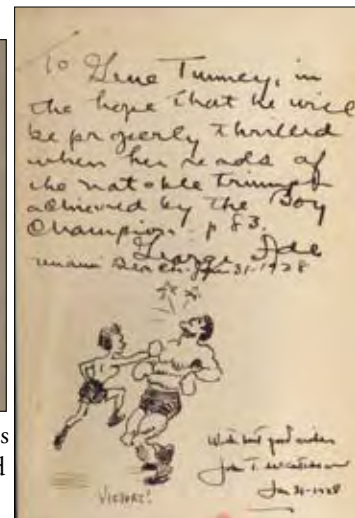 To Gene Tunney, in
the hope that he will
be properly thrilled
when he reads of
the notable triumph
achieved by the Boy
Champion - p 83.
George Ade
Miami Beach - Jan 31-1928
VICTORY!
With best good wishes
John T. McCutcheon
Jan 31-1928
s
d